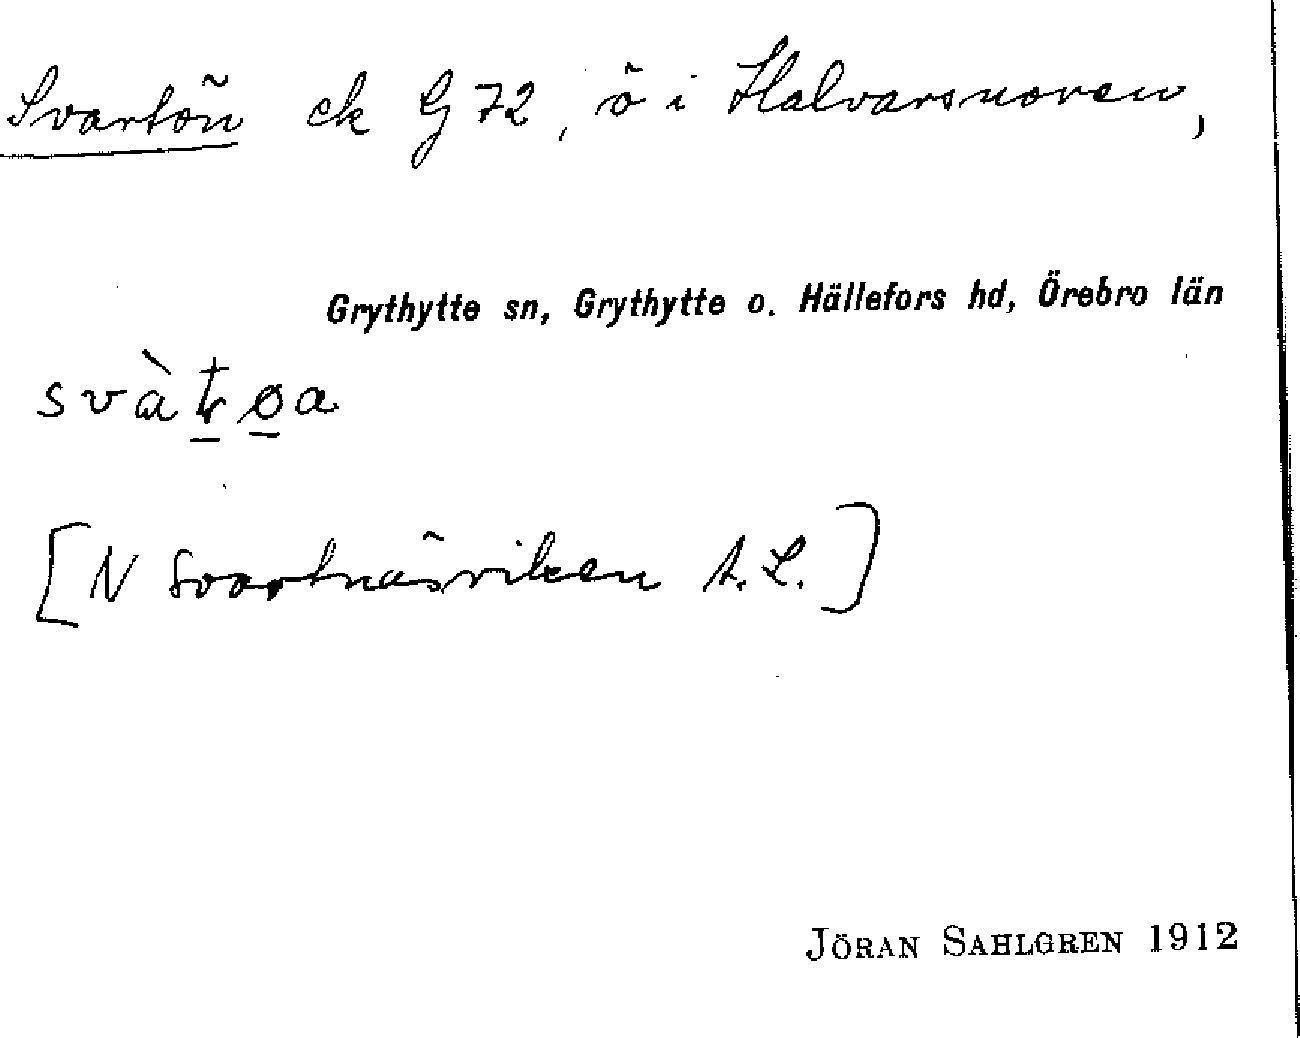 Svartön ek G 72, ö i Halvarsnoren,
Grythytte sn, Grythytte o. Hällefors hd, Örebro län
[N Svartnäsviken A.L.]
JÖRAN SAHLGREN 1912